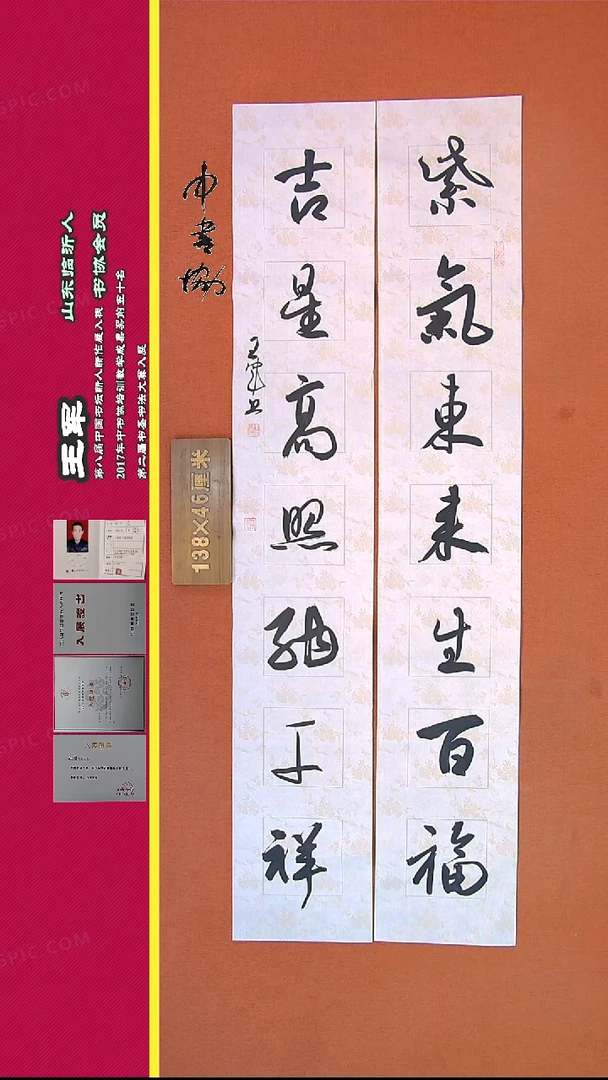 紫氣東来生百福
吉星高照納千祥
王军书
中书协
138×46厘米
王军
山东临沂人
书协会员
第八届中国书坛新人新作展入展
2017年中书协培训教学成果系前五十名
第二届书圣书法大赛入展
入展证书